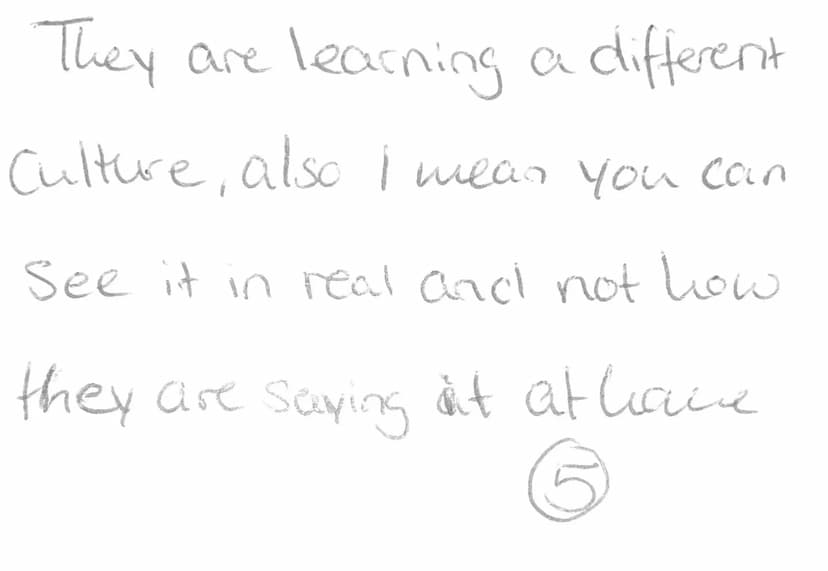 They are learning a different
Culture, also I mean you can
See it in real and not how
they are saying it at home
5